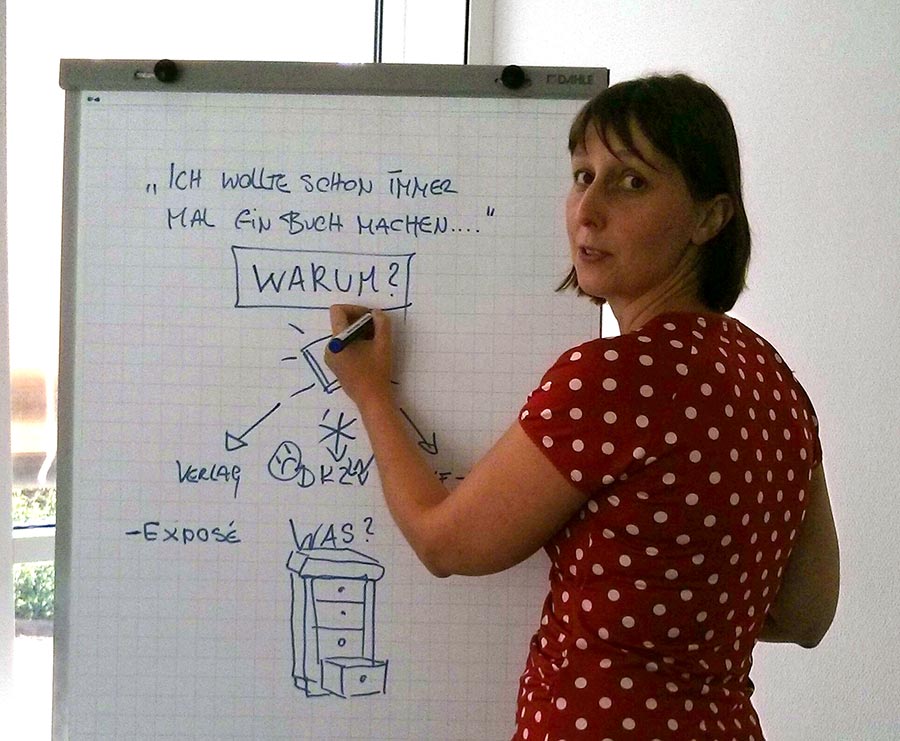 DAHLE
„ICH WOLLTE SCHON IMMER
MAL EIN BUCH MACHEN...."
WARUM?
VERLAG
-EXPOSÉ
WAS?